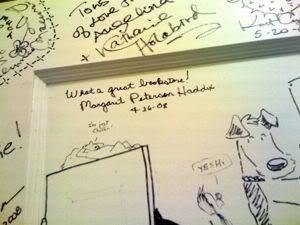 Tons
of Love from
Angelina
+ Katharine
Holabird
5-20-
What a great bookstore!
Margaret Peterson Haddix
4-26-08
I'm just
YESH.
2008